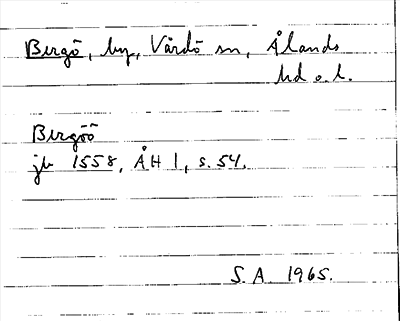 Bergö, by, Vårdö sn, Ålands
hd o. l.
Bergöö
jb 1558, ÅH 1, s. 54.
S.A. 1965.